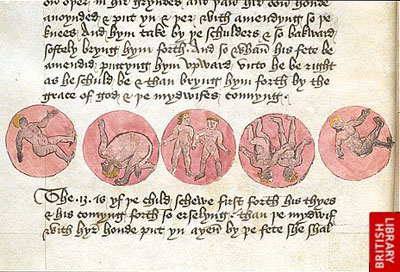 on oper in hir gryndes and pan hir oon honde
anoynded & put yn & per with amendyng so pe
knees And hym take by pe schulders & so bakward
softely bryng hym forth. And so whan his fete be
amendid puttyng hym vpward Vnto he be right
as he schuld be & than bryng hym forth by the
grace of god & pe mydwifes connyng.
The 13. is yf pe child schewe first forth his thyes
& his comyng forth so erselyng / than pe mydwif
with hyr honde put yn ayen by pe fete she shal
BRITISH
LIBRARY